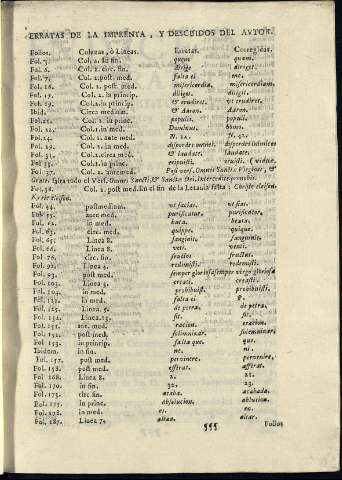 ERRATAS DE LA IMPRENTA, Y DESCUIDOS DEL AVTOR.
Follos. Colunas, ò Lineas. Erratas. Corregidas.
Fol. 3. Col. 2. in fin. quem quam.
Fol. 6. Col. 2. circ. fin. dirige diriget.
Fol. 7. Col. 2. post med. falta el me.
Fol. 18. Col. 2. post med. misericordia. misericordiam.
Fol. 19. Col. 2. in princip. diligat. diligit.
Fol. 19. Col. 2. in princip. & erudiret. vt erudiret.
Ibid. Circa medium. & Aaron. de Aaron.
Fol. 21. Col. 2. in princ. populis. populi.
Fol. 22. Col. 1. in med. Dominus. homo.
Fol. 24. Col. 2. ante med. N. 22. N. 42.
Fol. 29. Col. 2. in med.
Fol. 31. Col. 2. circa med. & laudate. laudate.
Fol. 35. Col. 2. in princ.
Fol. 37. Col. 2. ante med. Post vers. Omnes Sanctæ Virgines, &
falta todo el Vers. Omnes Sancti, & Sanctæ Dei. Intercedite pro nobis.
Fol. 38. Col. 2. post med. fin el fin de la Letania falta: Christe eleison.
Kyrie eleison.
Fol. 44. post medium. vt facias. vt fias.
Fol. 53. ante med. purificatur. purificator.
Fol. 62. in med. bata. beata.
Fol. 63. circ. med. quippe. quique.
Fol. 65. Linea 8. sanguinis. sanguinis.
Fol. 66. Linea 8. veti. veni.
Fol. 76. circ. fin. fractos fructus.
Fol. 92. Linea 4. redimisti. redemisti.
Fol. 93. post med. semper gloriosa semper virgo gloriosa
Fol. 103. Linea 3. creati. creasti.
Fol. 104. in med. prohibuist. prohibuisti.
Fol. 122. in med. falta el p.
Fol. 125. Linea 5. de perræ. de petra.
Fol. 136. Linea 13. sit. sic.
Fol. 151. ant. med. ration. oration.
Fol. 152. post med.
Fol. 153. in princip. falta que que.
Ibidem. in fin. ne. ni.
Fol. 157. post med. pervintre. pervenire.
Fol. 158. post med. afferas. afferat.
Fol. 168. Linea 8. 2. 21.
Fol. 170. in fin. 32. 23.
Fol. 173. circ. fin. acaba. acabada.
Fol. 175. in princ. absolucion. ablucion.
Fol. 178. in med. es. en.
Fol. 187. Linea 7. altan. altar.
¶¶¶ Follos